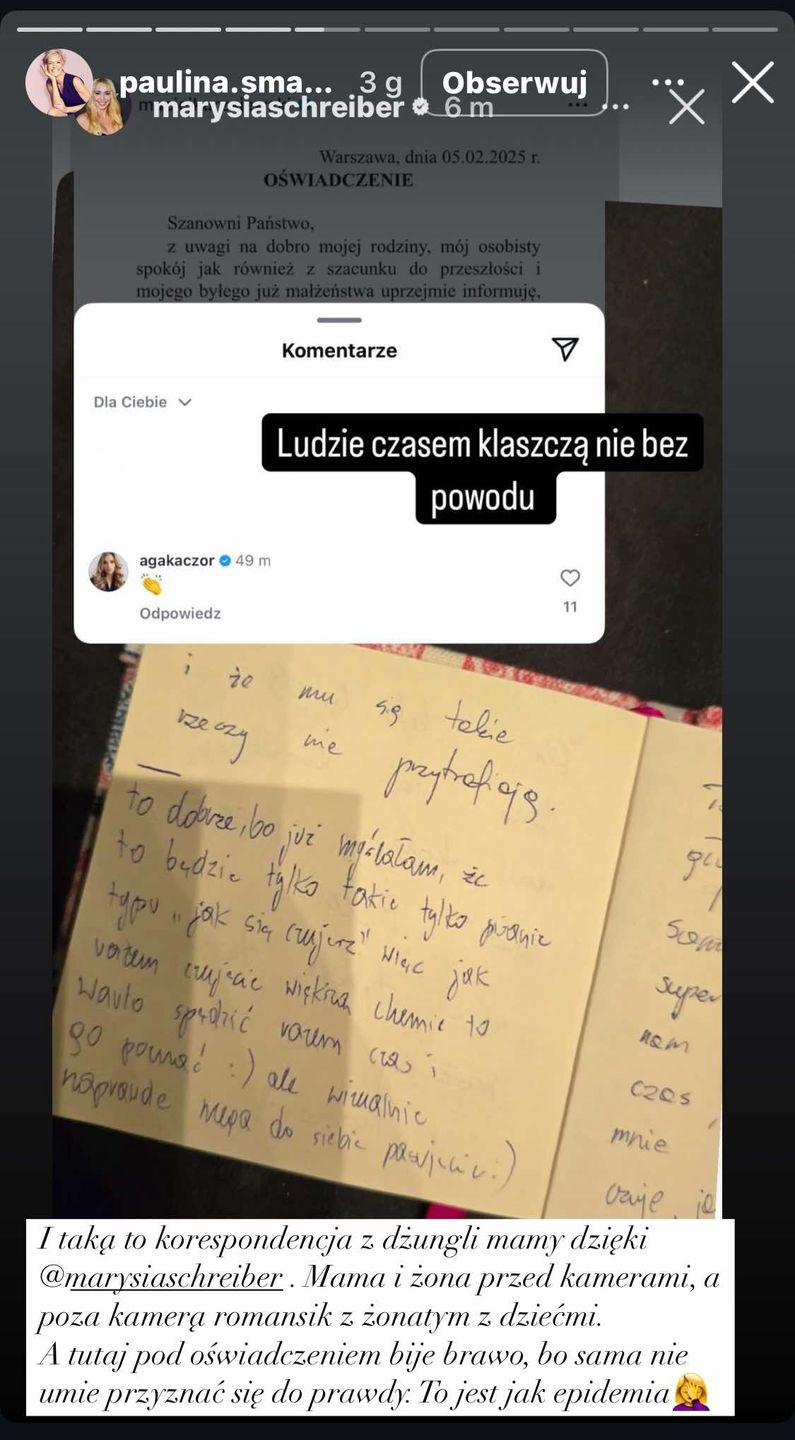 paulina.sma... 3 g Obserwuj
marysiaschreiber 6 m
Warszawa, dnia 05.02.2025 r.
OŚWIADCZENIE
Szanowni Państwo,
z uwagi na dobro mojej rodziny, mój osobisty
spokój jak również z szacunku do przeszłości i
mojego byłego już małżeństwa uprzejmie informuję,
Komentarze
Dla Ciebie
Ludzie czasem klaszczą nie bez
powodu
agakaczor 49 m
👏
Odpowiedz
11
i że mu się takie
rzeczy nie przytrafiają.
to dobrze, bo już myślałam, że
to będzie tylko takie tylko pisanie
typu "jak się czujesz" więc jak
razem czujecie większą chemię to
warto spędzić razem czas i
go poznać :) ale wizualnie
naprawdę mega do siebie pasujecie :)
super
nam
czas
mnie
czuje, ja
I taką to korespondencja z dżungli mamy dzięki
@marysiaschreiber . Mama i żona przed kamerami, a
poza kamerą romansik z żonatym z dziećmi.
A tutaj pod oświadczeniem bije brawo, bo sama nie
umie przyznać się do prawdy. To jest jak epidemia🤦‍♀️